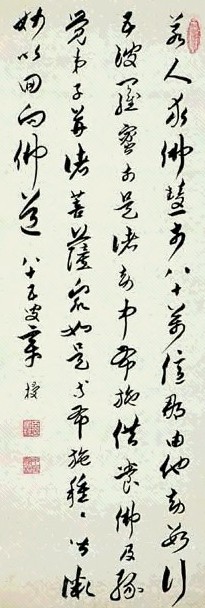 若人求佛慧於八十萬億那由他劫數行
五波羅蜜於是諸劫中布施供養佛及緣
覺弟子并諸菩薩眾如是等布施種々皆微
妙以回向佛道 八十五叟